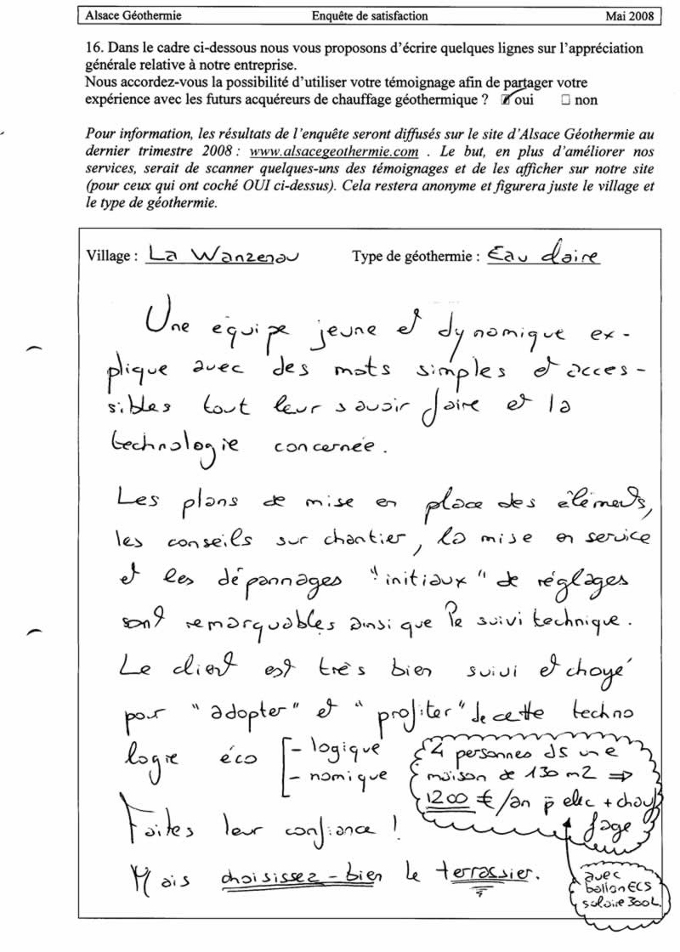 Alsace Géothermie Enquête de satisfaction Mai 2008
16. Dans le cadre ci-dessous nous vous proposons d'écrire quelques lignes sur l'appréciation
générale relative à notre entreprise.
Nous accordez-vous la possibilité d'utiliser votre témoignage afin de partager votre
expérience avec les futurs acquéreurs de chauffage géothermique ? ☑ oui ☐ non
Pour information, les résultats de l'enquête seront diffusés sur le site d'Alsace Géothermie au
dernier trimestre 2008 : www.alsacegeothermie.com . Le but, en plus d'améliorer nos
services, serait de scanner quelques-uns des témoignages et de les afficher sur notre site
(pour ceux qui ont coché OUI ci-dessus). Cela restera anonyme et figurera juste le village et
le type de géothermie.
Village : La Wanzenau Type de géothermie : Eau claire
Une équipe jeune et dynamique ex-
plique avec des mots simples et acces-
sibles tout leur savoir faire et la
technologie concernée.
Les plans de mise en place des éléments,
les conseils sur chantier, la mise en service
et les dépannages "initiaux" de réglages
sont remarquables ainsi que le suivi technique.
Le client est très bien suivi et choyé
pour "adopter" et "profiter" de cette techno
logie éco [ - logique
- nomique
4 personnes ds une
maison de 130 m2 ⇒
1200 €/an p̄ elec + chauf
fage
avec
ballon ECS
solaire 300L.
Faites leur confiance !
Mais choisissez-bien le terrassier.